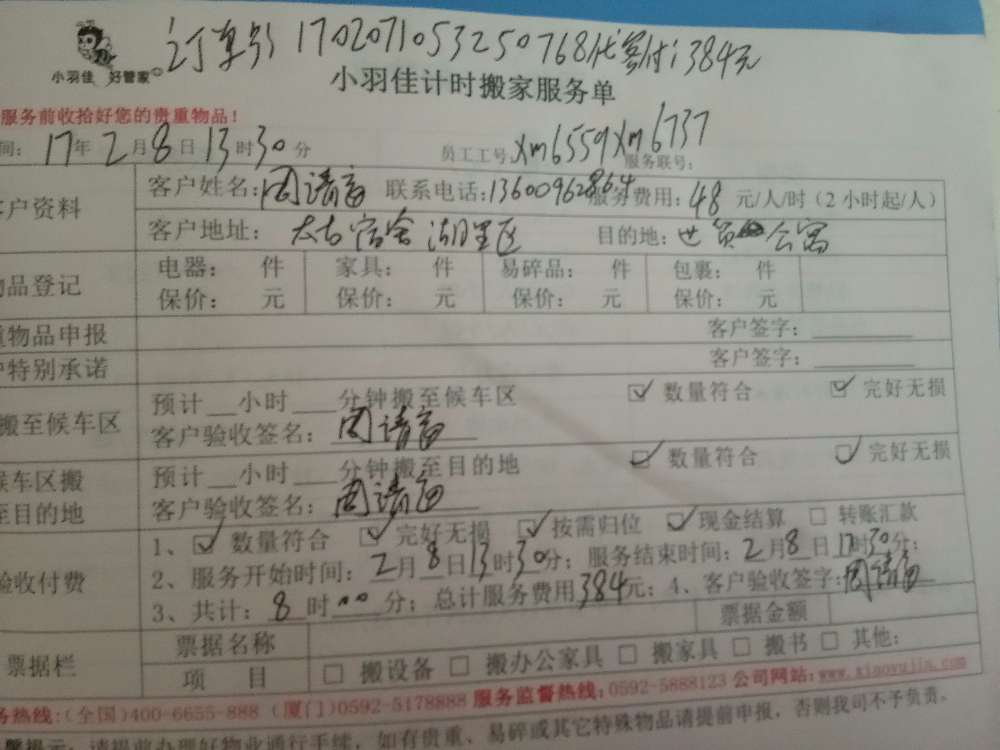 订单号 170207105325076​8代客付:384元
小羽佳 好管家
小羽佳计时搬家服务单
服务前收拾好您的贵重物品!
间: 17年 2月 8日 13时30分 员工工号 xm6559 xm6737 服务联号:
客户资料 客户姓名: 周请富 联系电话:13600962864 服务费用: 48 元/人/时(2小时起/人)
客户地址: 太古宿舍 湖里区 目的地: 世贸公寓
物品登记 电器: 件 家具: 件 易碎品: 件 包裹: 件
保价: 元 保价: 元 保价: 元 保价: 元
重物品申报 客户签字:
户特别承诺 客户签字:
搬至候车区 预计__小时___分钟搬至候车区 ☑ 数量符合 ☑ 完好无损
客户验收签名: 周请富
候车区搬至目的地 预计__小时___分钟搬至目的地 ☑ 数量符合 ☑ 完好无损
客户验收签名: 周请富
验收付费 1、☑ 数量符合 ☑ 完好无损 ☑ 按需归位 ☑ 现金结算 □ 转账汇款
2、服务开始时间: 2月8日13时30分; 服务结束时间: 2月8日17时30分;
3、共计: 8 时 00 分; 总计服务费用384元; 4、客户验收签字: 周请富
票据栏 票据名称 票据金额
项 目 □ 搬设备 □ 搬办公家具 □ 搬家具 □ 搬书 □ 其他:
务热线:(全国)400-6655-888 (厦门)0592-5178888 服务监督热线:0592-5888123 公司网站:www.xiaoyujia.com
馨提示: 请提前办理好物业通行手续, 如有贵重、易碎或其它特殊物品请提前申报, 否则我司不予负责。